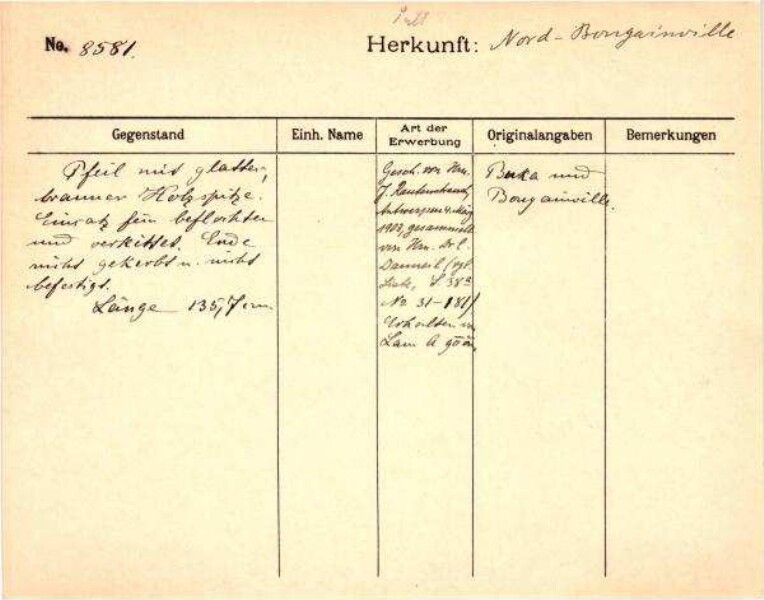 No. 8581.
Herkunft: Nord-Bougainville
Gegenstand
Einh. Name
Art der Erwerbung
Originalangaben
Bemerkungen
Pfeil mit glatter,
brauner Holzspitze.
Einsatz fein beflochten
und verkittet. Ende
nicht gekerbt u. nicht
befestigt.
Länge 135,7 cm.
Gesch. von Hrn.
J. Rautenstrauch,
Antwerpen 4. März
1908, gesammelt
von Hrn. Dr. C.
Danneil (vgl.
Liste, S. 38a
No 31-181)
Erhalten in
Lam
Buka und
Bougainville.